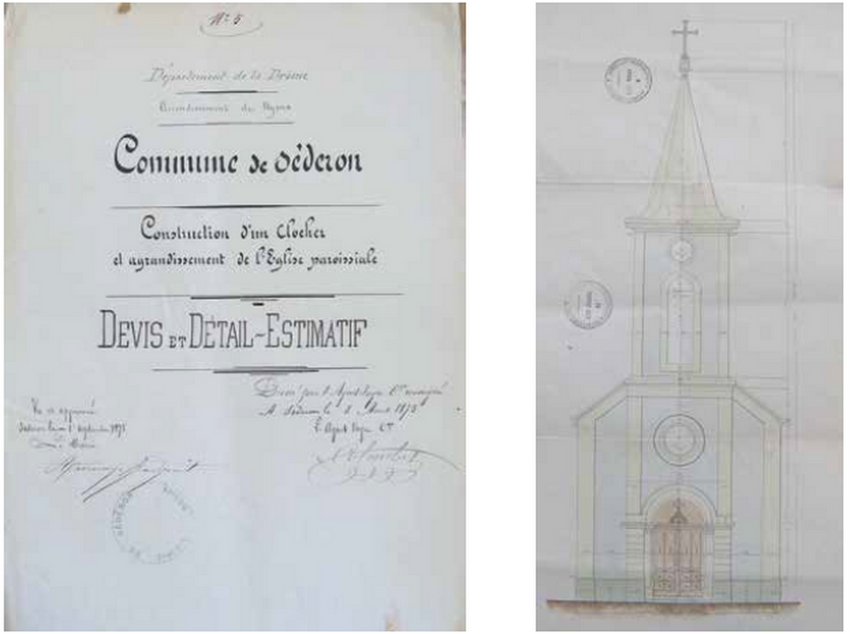 N° 5
Département de la Drôme
Arrondissement de Nyons
Commune de Séderon
Construction d'un Clocher
et agrandissement de l'Eglise paroissiale
DEVIS ET DÉTAIL-ESTIMATIF
Dressé par l'Agent Voyer Ct soussigné
A Séderon le 1 1875
L'Agent Voyer Ct
Vu et approuvé
Séderon le 1er Septembre 1875
Le Maire